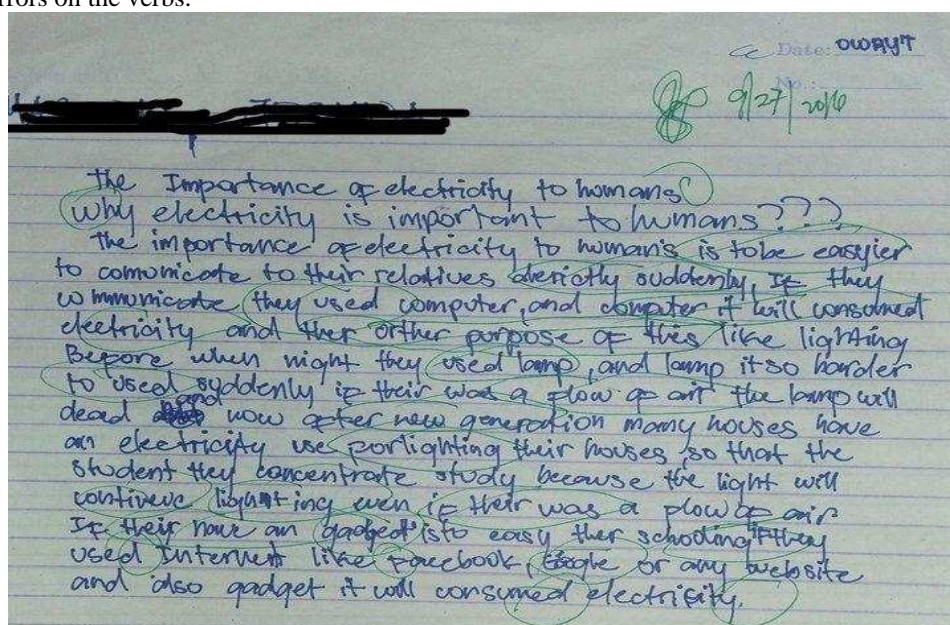 errors on the verbs.
Date: OWAYT
No.:
9/27/2016
The Importance of electricity to humans
Why electricity is important to humans???
The importance of electricity to human's is to be easyier
to comonicate to their relatives derictly suddenly, If they
communicate they used computer, and computer it will consumed
electricity and ther orther purpose of this like lighting
Before when night they used lamp, and lamp it so harder
to used suddenly if their was a flow of air the lamp will
dead and now after new generation many houses have
an electricity use forlighting their houses, so that the
student they concentrate study because the light will
contineue lighting even if their was a flow of air
If their have an gadget isto easy ther schooling if they
used Internert like facebook, Google or any website
and also gadget it will consumed electrifity.